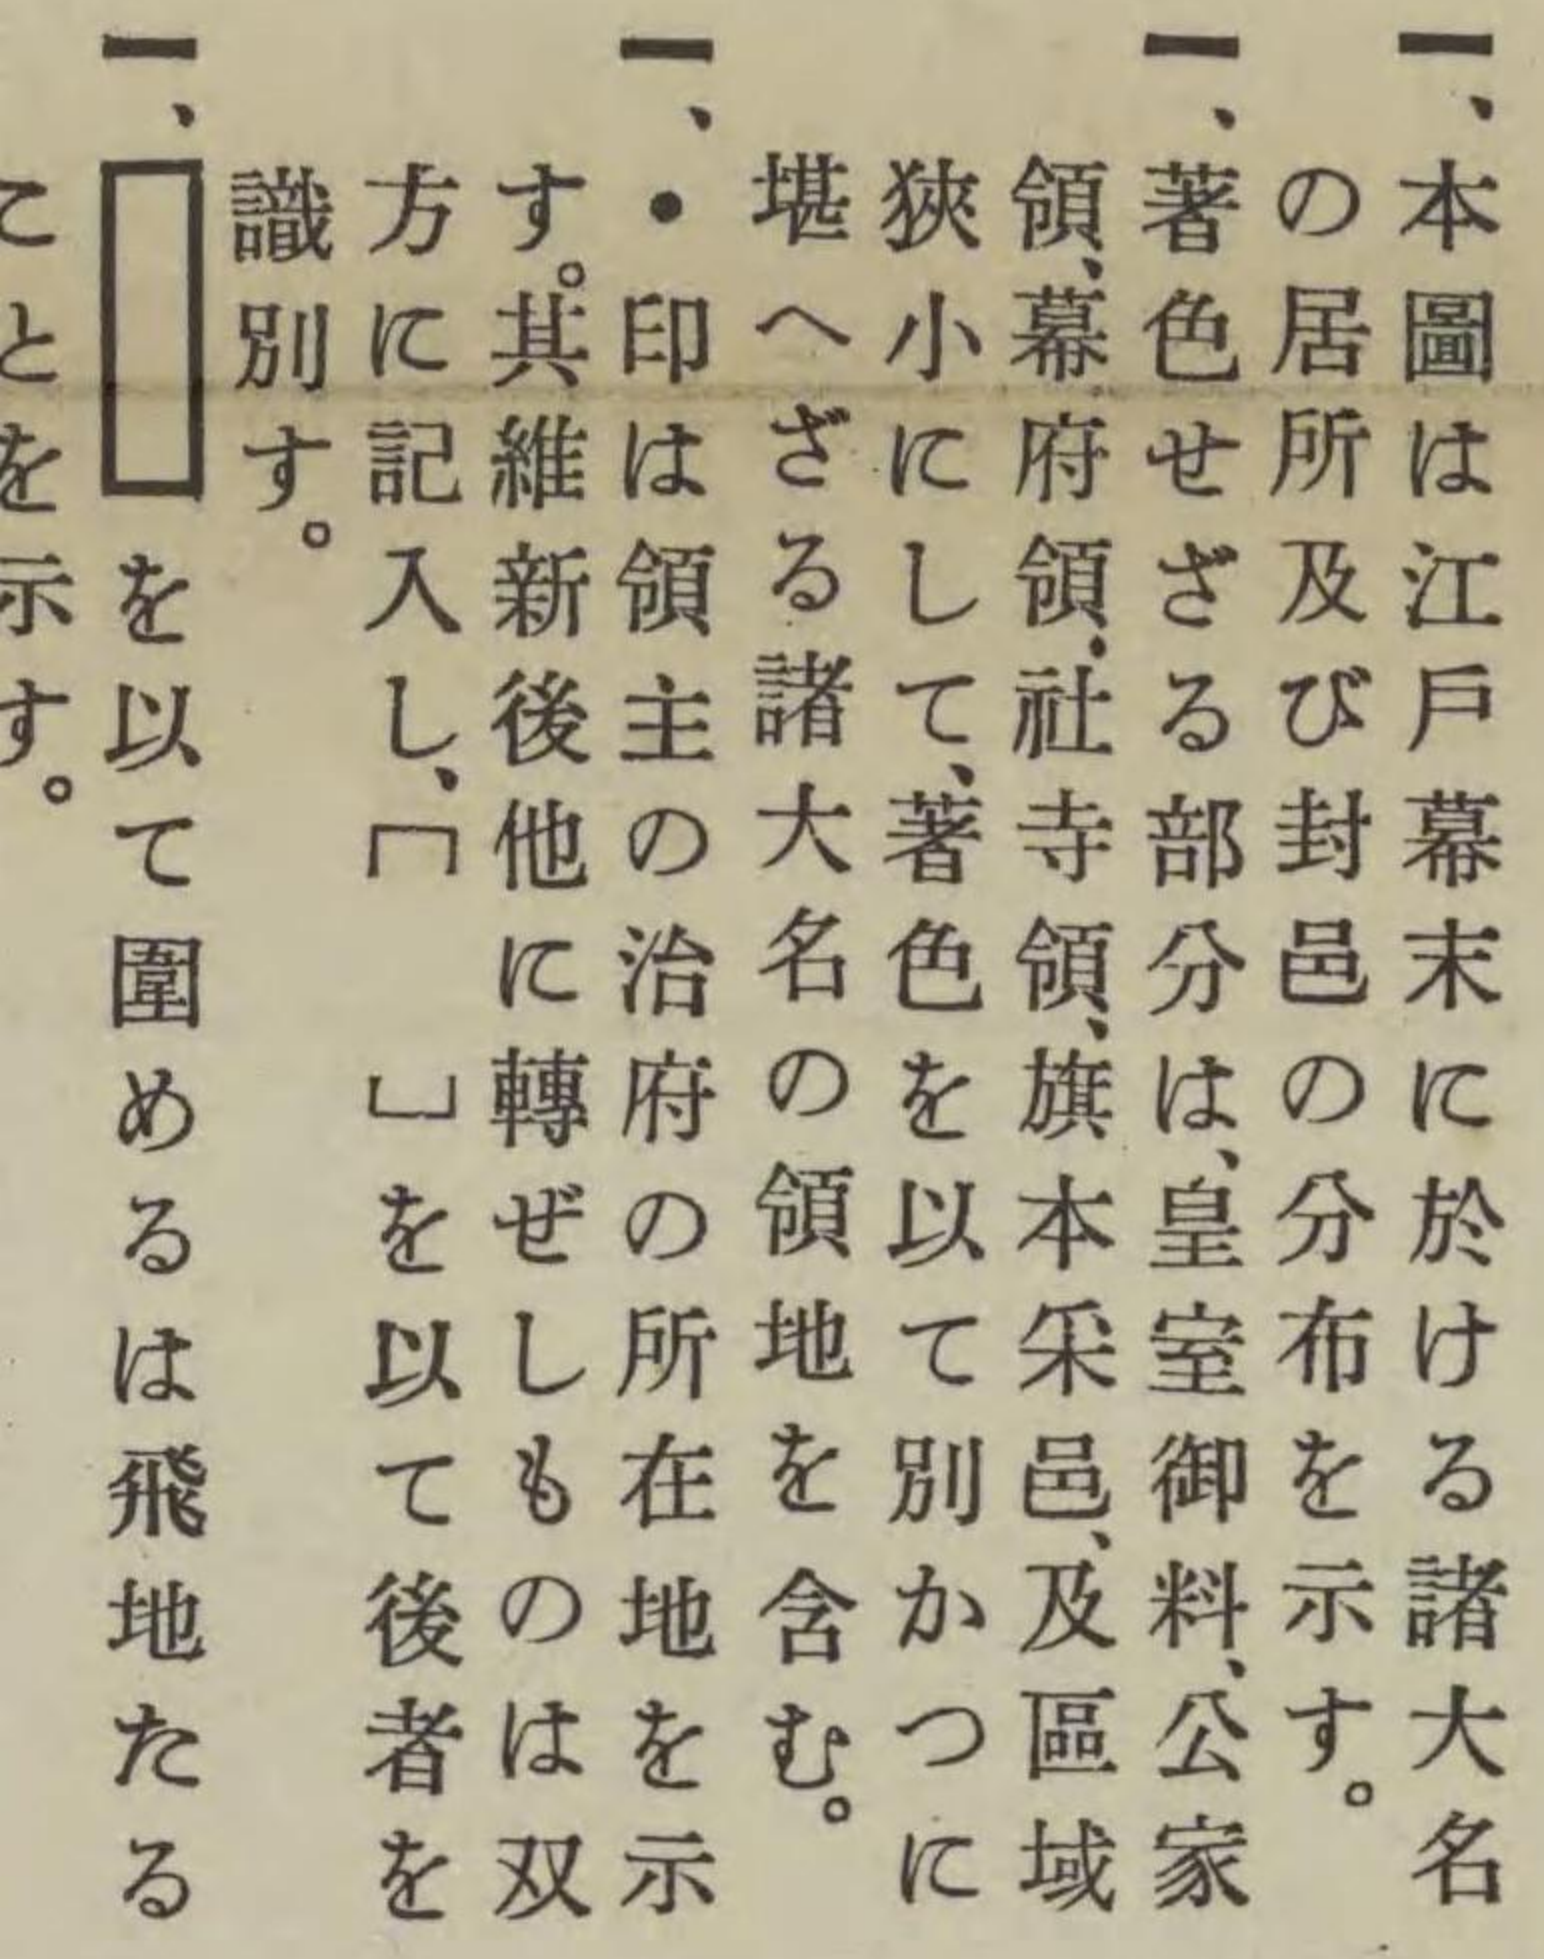 一、本圖は江戶幕末に於ける諸大名
の居所及び封邑の分布を示す。
一、著色せざる部分は、皇室御料、公家
領、幕府領、社寺領、旗本采邑、及區域
狹小にして、著色を以て別かつに
堪へざる諸大名の領地を含む。
一、•印は領主の治府の所在地を示
す。其維新後他に轉ぜしものは双
方に記入し、［　］を以て後者を
識別す。
一、▭を以て圍めるは飛地たる
ことを示す。